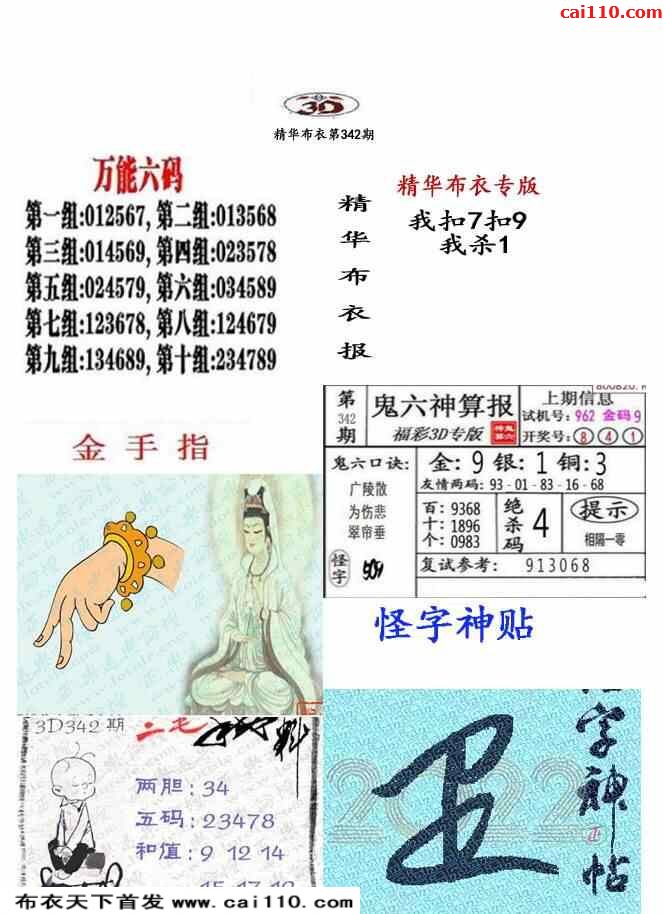 cai110.com
3D
精华布衣第342期
万能六码
第一组:012567,第二组:013568
第三组:014569,第四组:023578
第五组:024579,第六组:034589
第七组:123678,第八组:124679
第九组:134689,第十组:234789
精华布衣报
精华布衣专版
我扣7扣9
我杀1
金手指
第342期
鬼六神算报
福彩3D专版
上期信息
试机号:962 金码9
开奖号:841
鬼六口诀:
广陵散
为伤悲
翠帘垂
金:9 银:1 铜:3
友情两码:93-01-83-16-68
百:9368
十:1896
个:0983
绝杀码
4
提示
相隔一零
怪字
509
复试参考: 913068
怪字神贴
3D342期
二毛
两胆:34
五码:23478
和值:9 12 14
15 17 19
2022
怪字神帖
布衣天下首发 www.cai110.com